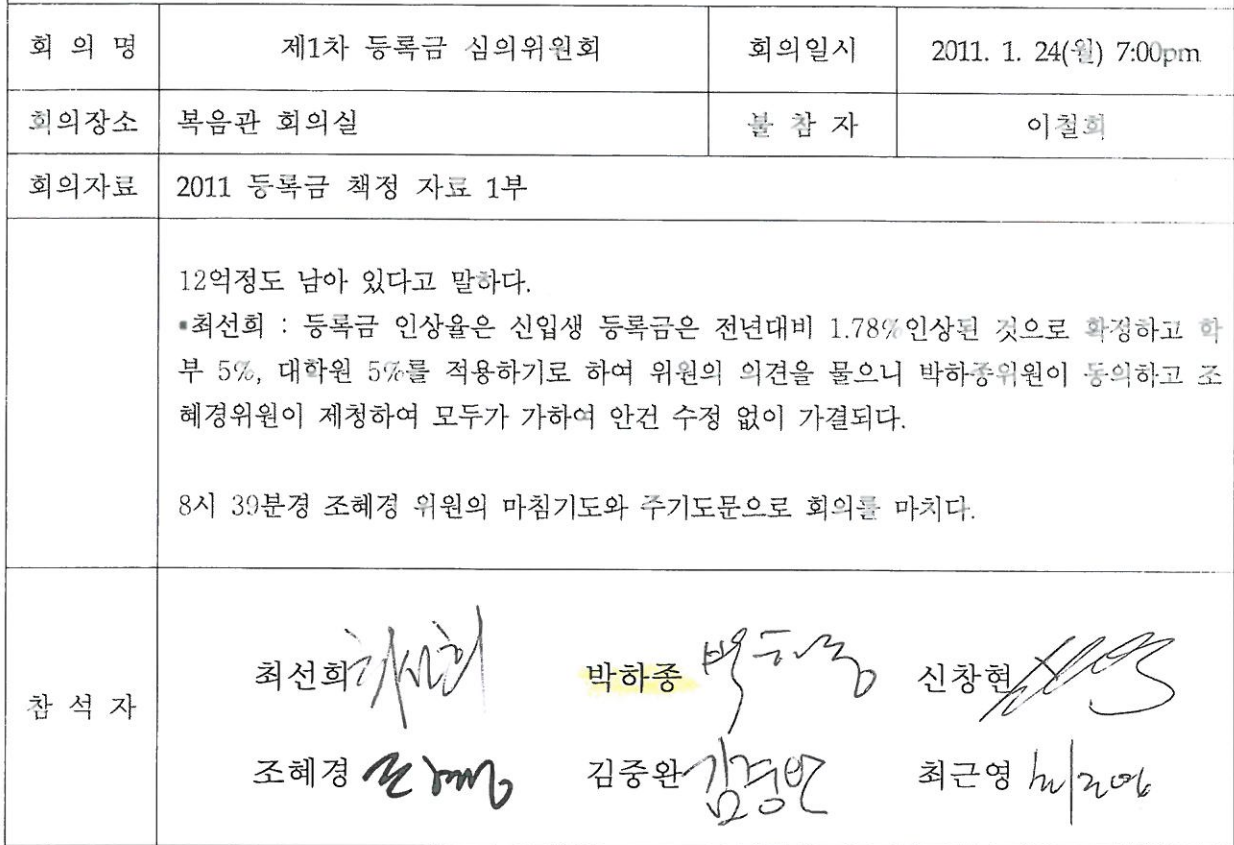 회 의 명 제1차 등록금 심의위원회 회의일시 2011. 1. 24(월) 7:00pm
회의장소 복음관 회의실 불 참 자 이철희
회의자료 2011 등록금 책정 자료 1부
12억정도 남아 있다고 말하다.
▪최선희 : 등록금 인상율은 신입생 등록금은 전년대비 1.78%인상된 것으로 확정하고 학
부 5%, 대학원 5%를 적용하기로 하여 위원의 의견을 물으니 박하종위원이 동의하고 조
혜경위원이 제청하여 모두가 가하여 안건 수정 없이 가결되다.
8시 39분경 조혜경 위원의 마침기도와 주기도문으로 회의를 마치다.
참 석 자
최선희 최선희 박하종 박하종 신창현
조혜경 조혜경 김중완 최근영 최근영